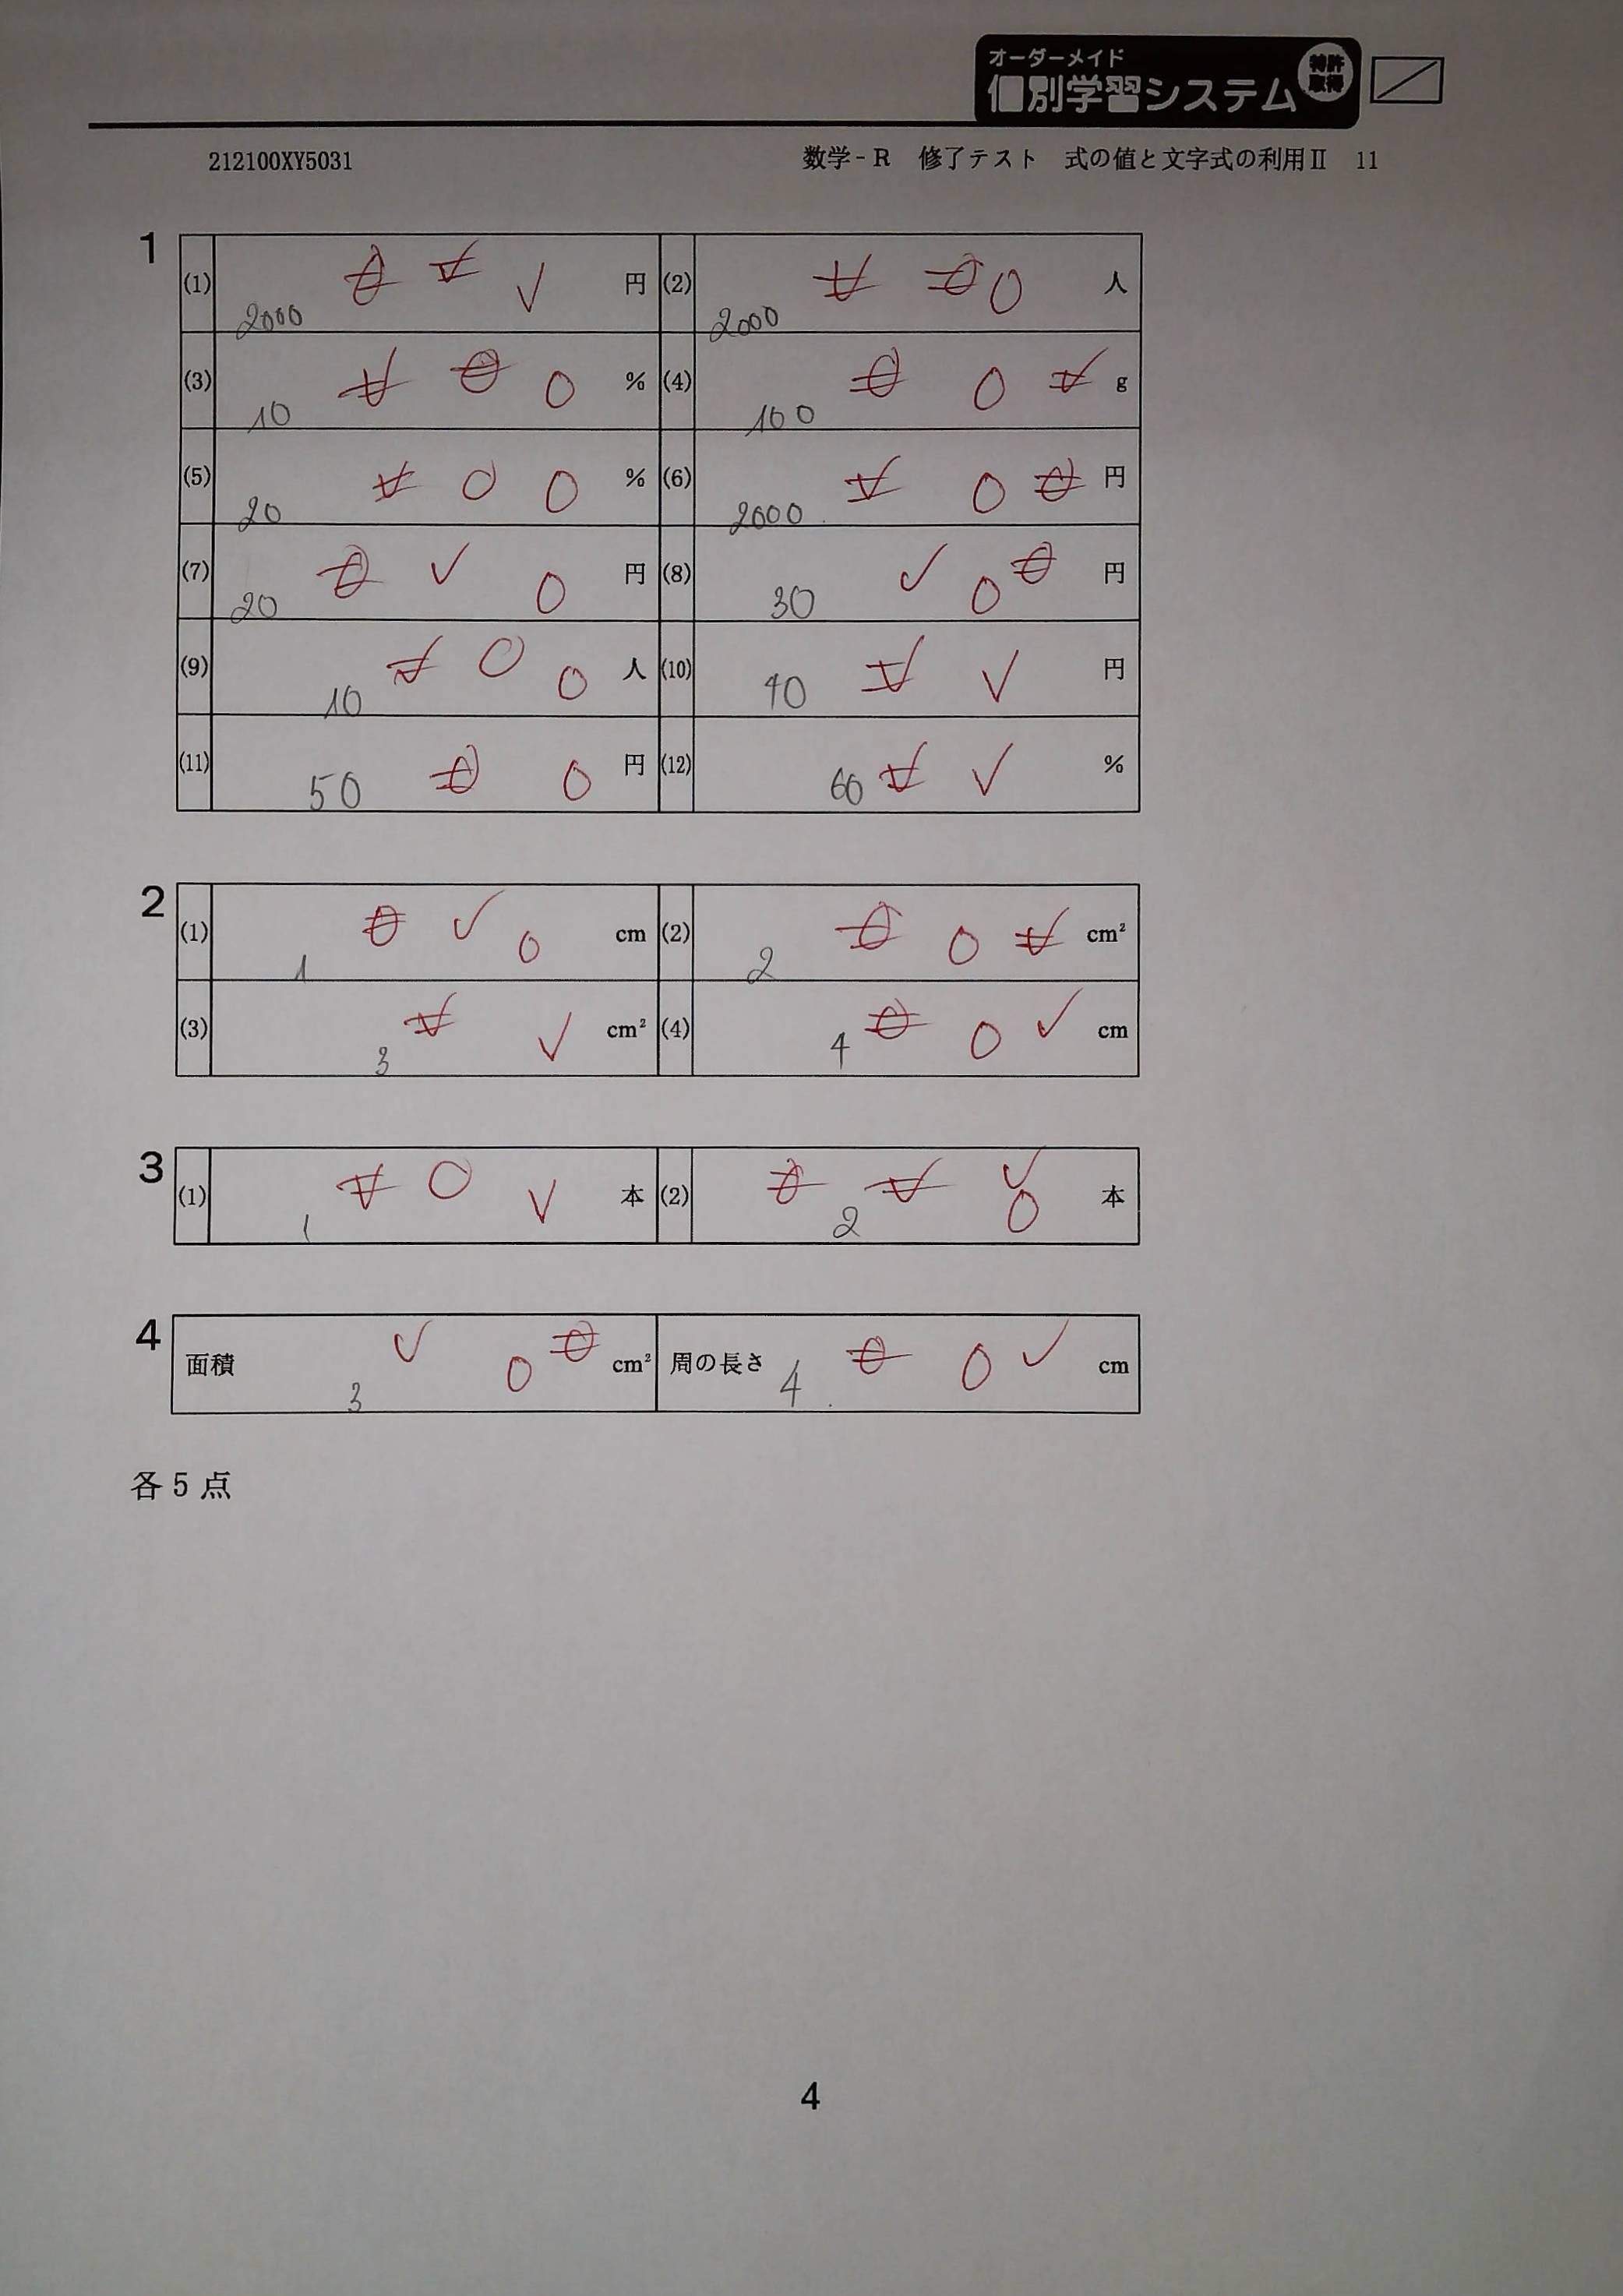 オーダーメイド
個別学習システム
特許
取得
212100XY5031 数学-R 修了テスト 式の値と文字式の利用Ⅱ 11
1
(1) 2000 円 (2) 2000 人
(3) 10 % (4) 100 g
(5) 20 % (6) 2000 円
(7) 20 円 (8) 30 円
(9) 10 人 (10) 40 円
(11) 50 円 (12) 60 %
2
(1) 1 cm (2) 2 cm²
(3) 3 cm² (4) 4 cm
3
(1) 1 本 (2) 2 本
4
面積 3 cm² 周の長さ 4 cm
各5点
4